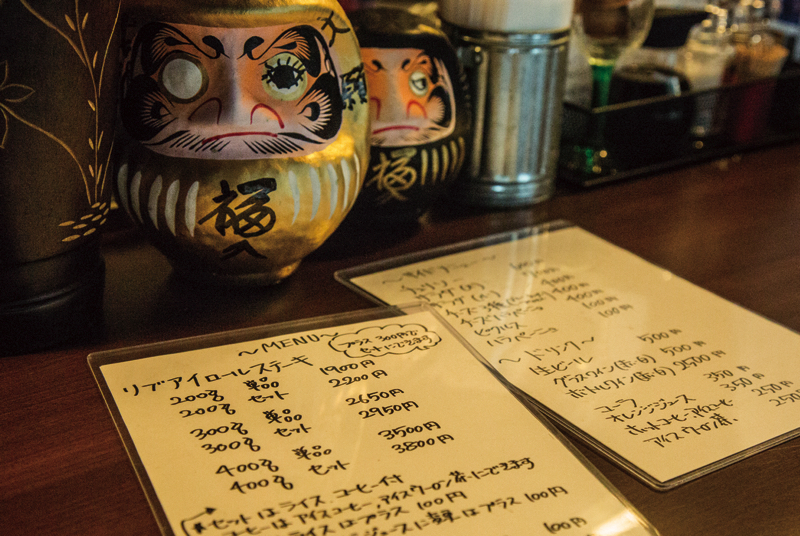 福
入
福
〜MENU〜
プラス300円で
セットにできます
リブアイロールステーキ
200g 単品 1900円
200g セット 2200円
300g 単品 2650円
300g セット 2950円
400g 単品 3500円
400g セット 3800円
セットはライス、コーヒー付
コーヒーはアイスコーヒー、アイスウーロン茶にできます
ライスはプラス100円
ジュースに変更はプラス100円
100円
〜サイドメニュー〜
チーズ
ピクルス 100円
ハラペーニョ 100円
〜ドリンク〜
生ビール 500円
グラスワイン(赤・白) 500円
ボトルワイン(赤・白) 2500円
コーラ 350円
オレンジジュース 350円
ホットコーヒー・アイスコーヒー 250円
アイスウーロン茶 250